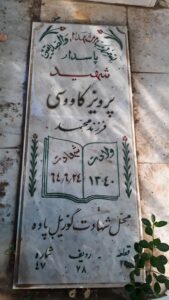 پاسدار
شهید
پرویز کاووسی
فرزند محمد
ولادت
شهادت
۱۳۴۰
۶۴/۹/۲۴
محل شهادت گوزیل پاوه
قطعه ردیف شماره
۷۸ ۴۷